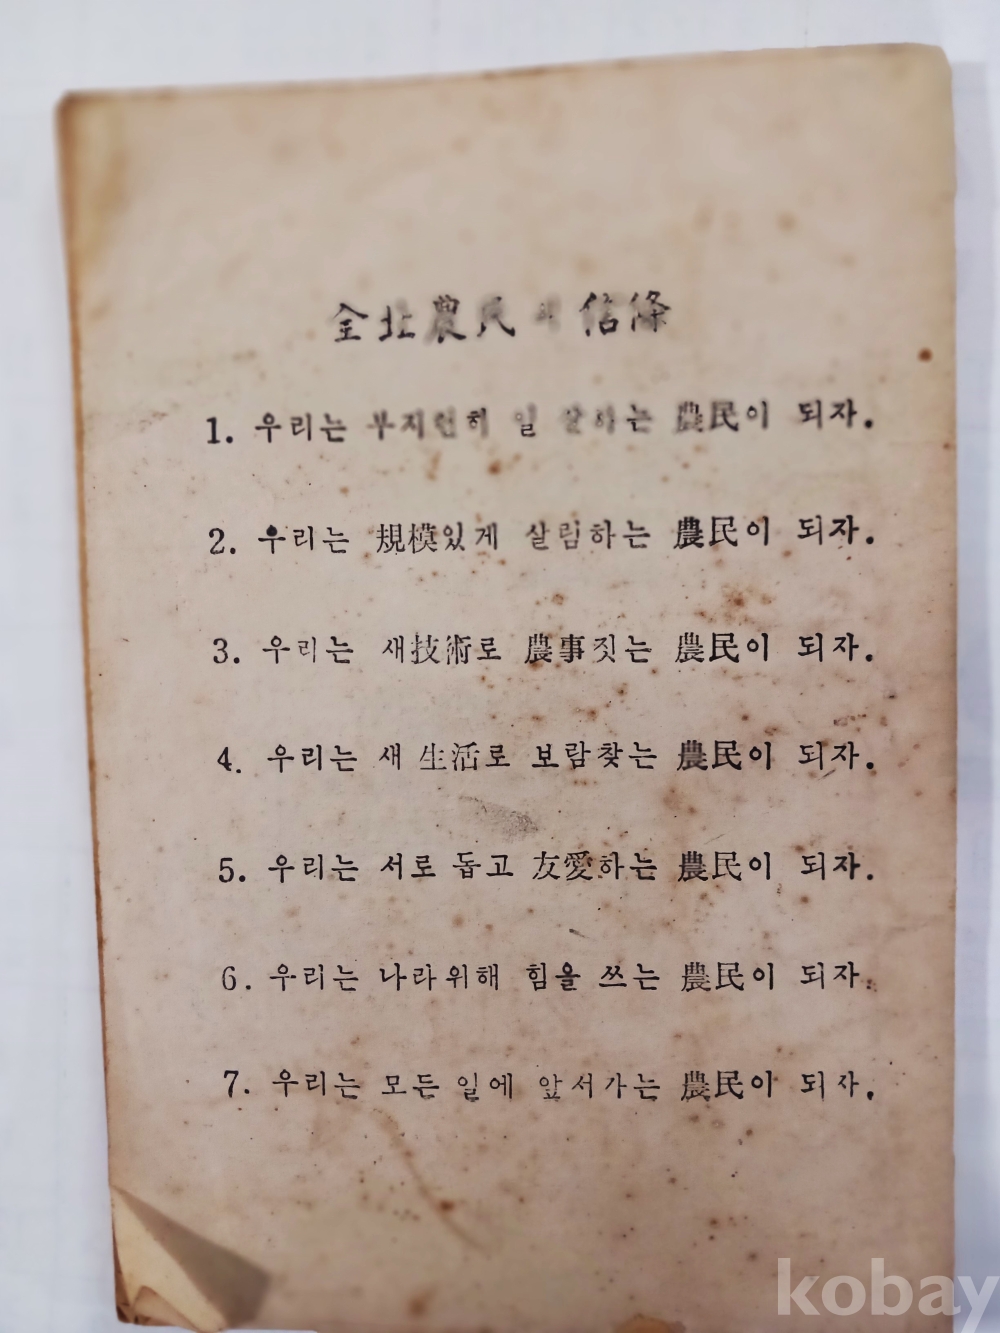 全北農民의 信條
1. 우리는 부지런히 일 잘하는 農民이 되자.
2. 우리는 規模있게 살림하는 農民이 되자.
3. 우리는 새技術로 農事짓는 農民이 되자.
4. 우리는 새 生活로 보람찾는 農民이 되자.
5. 우리는 서로 돕고 友愛하는 農民이 되자.
6. 우리는 나라위해 힘을 쓰는 農民이 되자.
7. 우리는 모든 일에 앞서가는 農民이 되자.
kobay